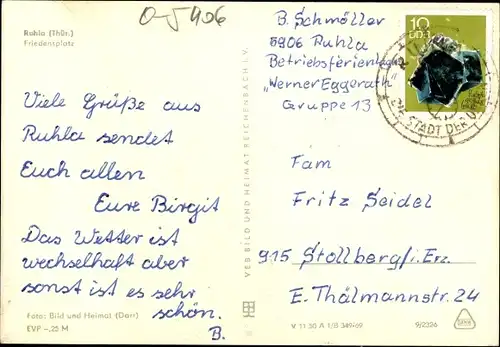 O-5906
Ruhla (Thür.)
Friedensplatz
Viele Grüße aus
Ruhla sendet
Euch allen
Eure Birgit
Das Wetter ist
wechselhaft aber
sonst ist es sehr
schön.
B.
Foto: Bild und Heimat (Darr)
EVP –,25 M
VEB BILD UND HEIMAT REICHENBACH i. V.
B. Schmöller
5906 Ruhla
Betriebsferienlager
„Werner Eggerath“
Gruppe 13
10
DDR
STADT DER
Fam
Fritz Seidel
915 Stollberg/i. Erz.
E.-Thälmannstr. 24
V 11 30 A 1/B 349/69
9/2326